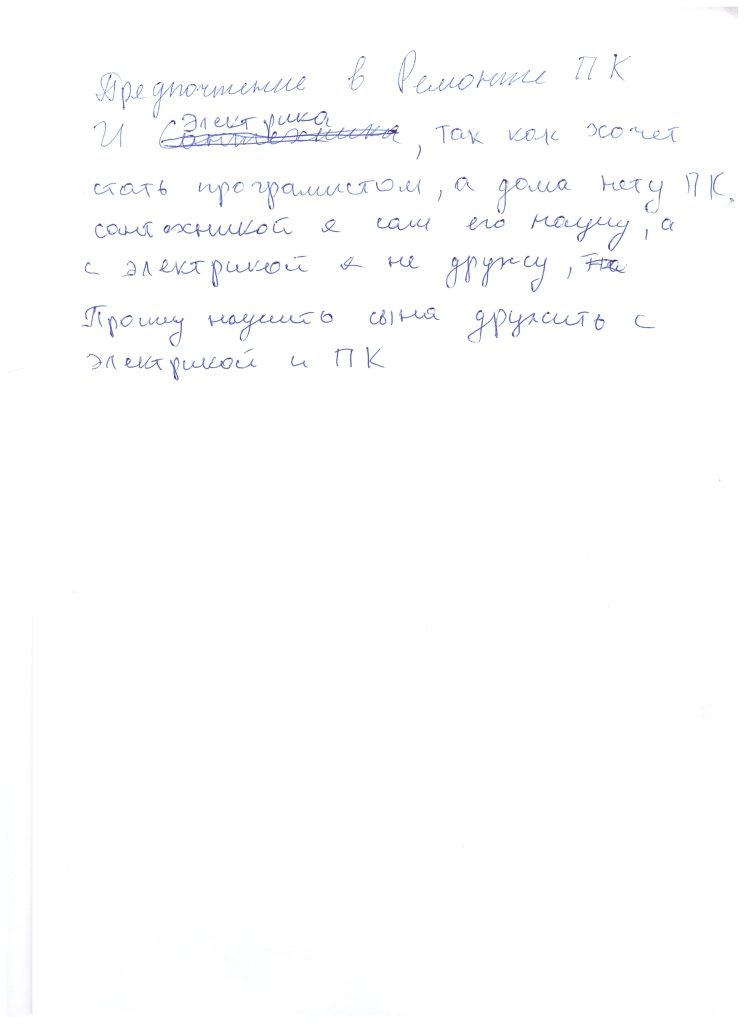 Предпочтение в Ремонте ПК
И Электрика, так как хочет
стать програмистом, а дома нету ПК.
сантехникой я сам его научу, а
с электрикой я не дружу,
Прошу научить сына дружить с
электрикой и ПК